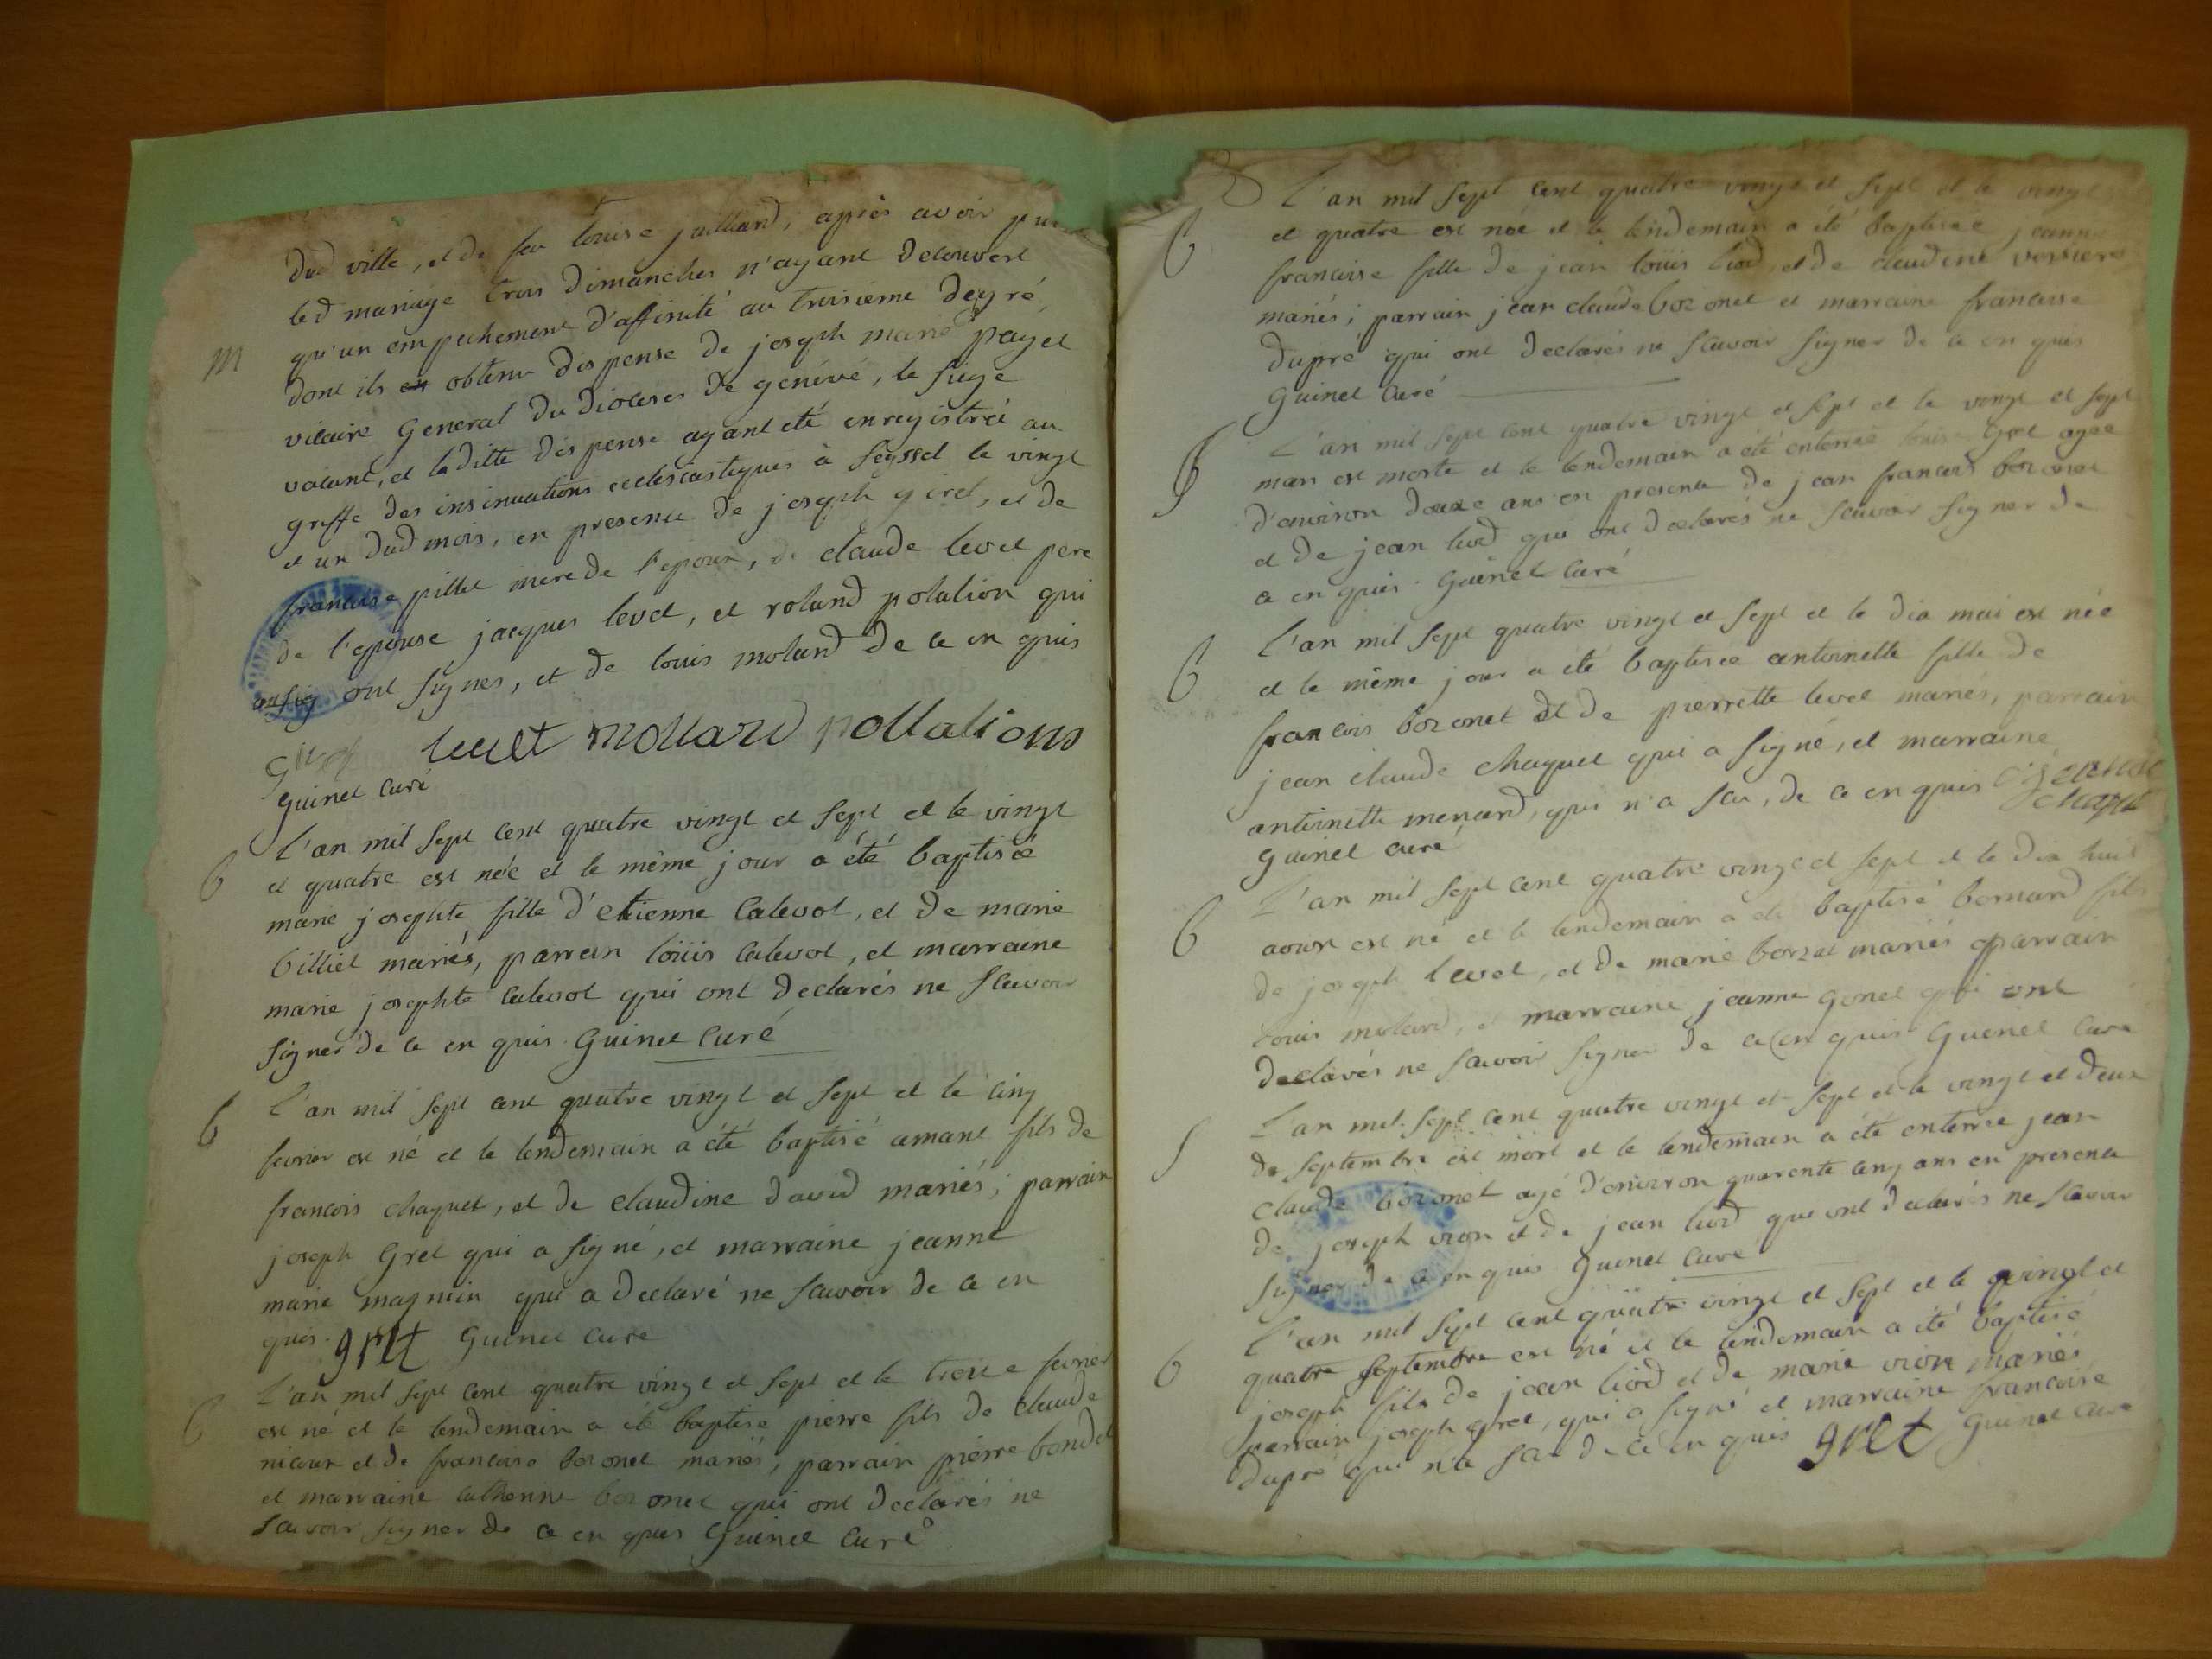 dud ville, et de feu louise juilland, après avoir
led mariage trois dimanches n'ayant decouvert
m
qu'un empechement d'affinité au troisieme degré,
dont ils obtenu dispense de joseph marie paget
vicaire General du diocese de genéve, le siege
vacant, et laditte dispense ayant eté enregistrée au
greffe des insinuations ecclesiastiques à seyssel le vingt
et un dud mois, en presence de joseph giret, et de
francoise pillet mere de l'epoux, de claude levet pere
de l'epouse jacques levet, et roland polalion qui
ont signes, et de louis moland de ce en quis
levet mollard pollalions
Guinet curé
b
l'an mil sept cent quatre vingt et sept et le vingt
et quatre est née et le même jour a été baptisée
marie josephte fille d'etienne calevot, et de marie
billiet mariés, parrein loüis calevot, et marraine
marie josephte calevot qui ont declarés ne scavoir
signer de ce en quis Guinet curé
b
l'an mil sept cent quatre vingt et sept et le cinq
fevrier est né et le lendemain a été baptisé amant fils de
francois chaquet, et de claudine david mariés; parrain
joseph Gret qui a signé, et marraine jeanne
marie magnin qui a declaré ne scavoir de ce en
quis. gret Guinet curé
b
l'an mil sept cent quatre vingt et sept et le treise fevrier
est né et le lendemain a été baptisé pierre fils de claude
nicoux et de francoise bozonet mariés, parrain pierre bondet
et marraine catherine bozonet qui ont declarés ne
scavoir signer de ce en quis Guinet curé
l'an mil sept cent quatre vingt et sept et le vingt
b
et quatre est née et le lendemain a été baptisée jeanne
francoise fille de jean loüis liod, et de claudine vessiere
mariés; parrain jean claude bozonet et marraine francoise
dupré qui ont declarés ne scavoir signer de ce en quis
Guinet curé
S
l'an mil sept cent quatre vingt et sept et le vingt et sept
mars est morte et le lendemain a été enterrée louise gret agée
d'environ douze ans en presence de jean francois bozonet
et de jean liod qui ont declarés ne scavoir signer de
ce en quis. Guinet curé
b
l'an mil sept quatre vingt et sept et le dix mai est née
et le même jour a été baptisée antoinette fille de
francois bozonet et de pierrette levet mariés, parrain
jean claude chaquet qui a signé, et marraine
antoinette menard, qui n'a scu, de ce en quis
Guinet curé
b
l'an mil sept cent quatre vingt et sept et le dix huit
aoust est né et le lendemain a été baptisé bernard fils
de joseph levet, et de marie borzet mariés parrain
louis molard, et marraine jeanne Gonet qui ont
declarés ne scavoir signer de ce en quis Guinet curé
S
l'an mil sept cent quatre vingt et sept et le vingt et deux
de septembre est mort et le lendemain a été enterrée jean
claude bozonet agé d'environ quarente cinq ans en presence
de joseph vion et de jean liod qui ont declarés ne scavoir
signer de ce en quis Guinet curé
b
l'an mil sept cent quatre vingt et sept et le vingt et
quatre septembre est né et le lendemain a été baptisé
joseph fils de jean liod et de marie vion mariés
parrain joseph gret, qui a signé et marraine francoise
dupré qui n'a scu de ce en quis gret Guinet curé